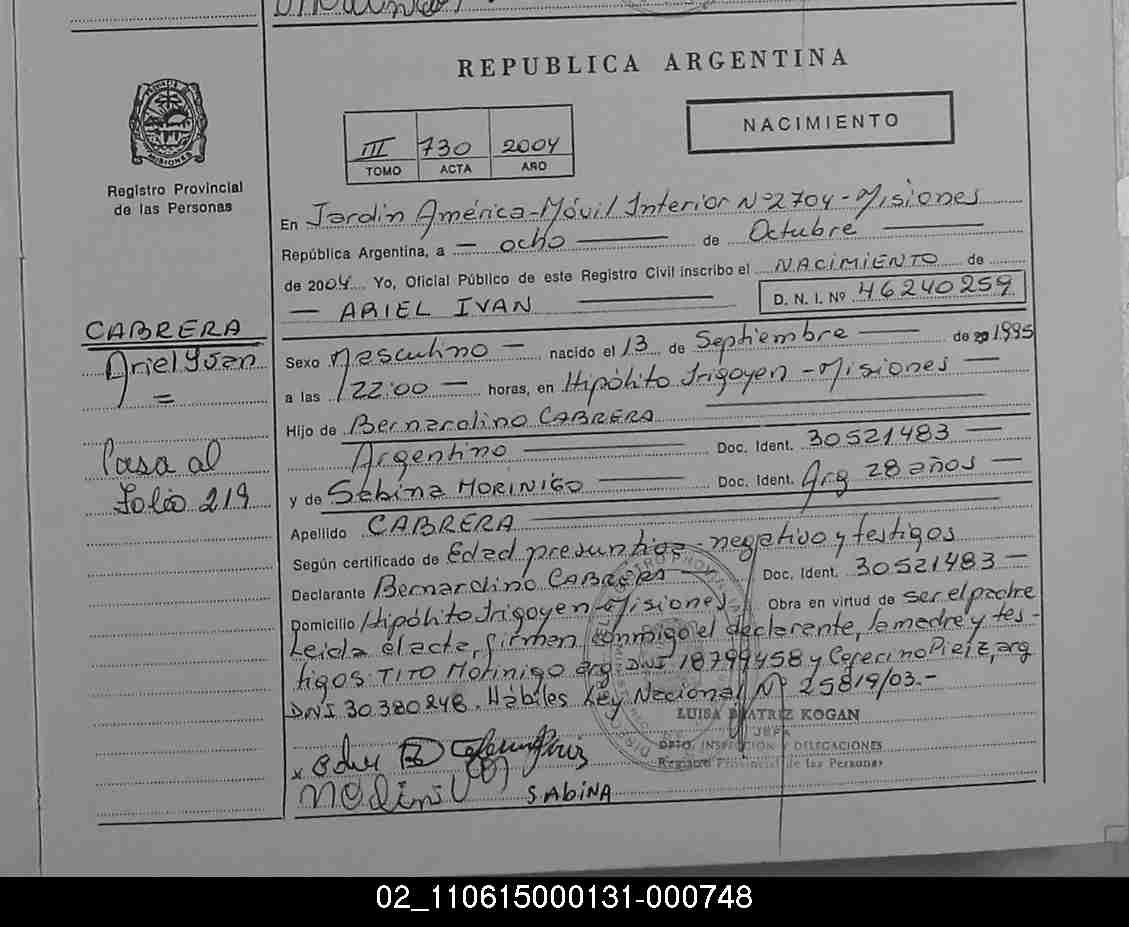 REPUBLICA ARGENTINA
NACIMIENTO
III 730 2004
TOMO ACTA AÑO
MISIONES
Registro Provincial
de las Personas
En Jardin América-Móvil Interior Nº2704-Misiones
República Argentina, a — ocho — de Octubre —
de 2004 Yo, Oficial Público de este Registro Civil inscribo el NACIMIENTO de
— ARIEL IVAN — D. N. I. Nº 46240259
CABRERA
Ariel Ivan
=
Sexo Masculino — nacido el 13 de Septiembre — de 20 1995
a las 22:00 — horas, en Hipólito Irigoyen - Misiones —
Hijo de Bernardino CABRERA —
Argentino — Doc. Ident. 30521483 —
Pasa al
folio 219
y de Sabina MORINIGO — Doc. Ident. Arg 28 años —
Apellido CABRERA —
Según certificado de Edad presuntiva - negativo y testigos
Declarante Bernardino CABRERA — Doc. Ident. 30521483 —
Domicilio Hipólito Irigoyen - Misiones Obra en virtud de ser el padre
Leida el acta, firman conmigo el declarante, la madre y tes-
tigos: TITO Morinigo arg. DNI 18799458 y Ceferino arg
DNI 30.380248. Hábiles Ley Nacional Nº 25819/03.-
LUISA BEATRIZ KOGAN
JEFA
DPTO. INSPECCION Y DELEGACIONES
Registro Provincial de las Personas
x
SABINA
02_110615000131-000748